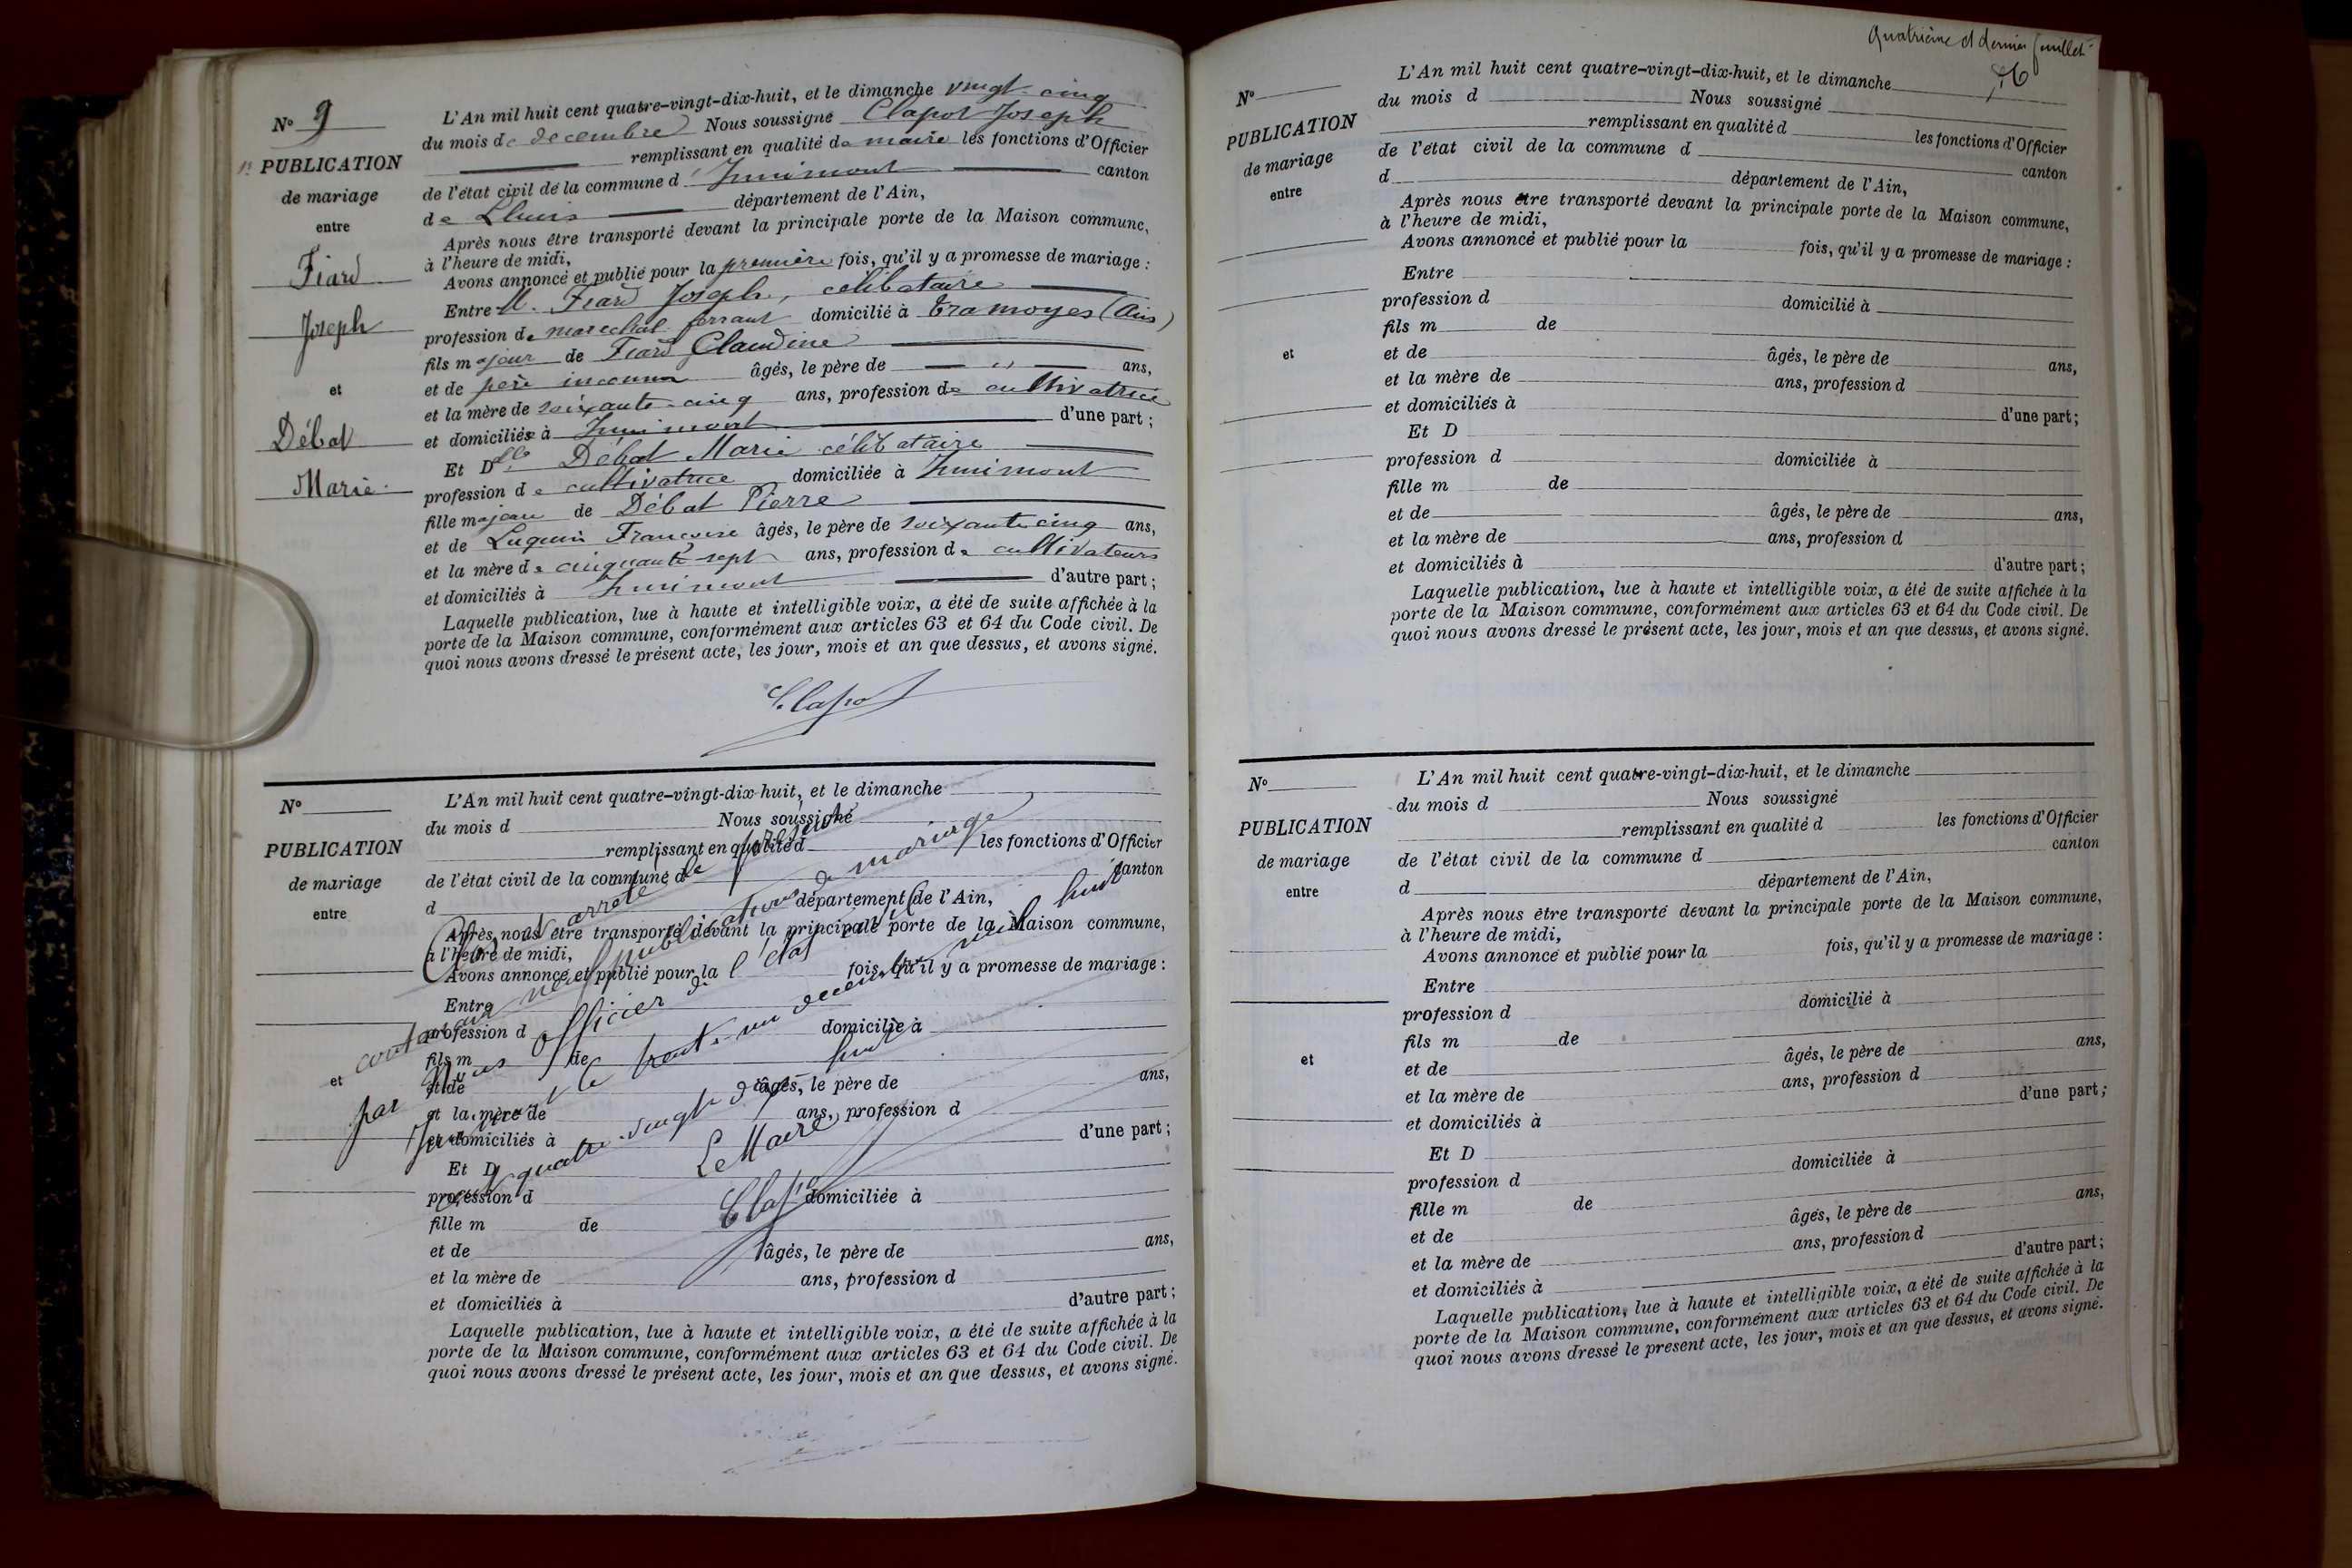 N° 9
1re PUBLICATION
de mariage
entre
Fiard
Joseph
et
Débat
Marie
L'An mil huit cent quatre-vingt-dix-huit, et le dimanche vingt-cinq
du mois de decembre Nous soussigné Clapot Joseph
remplissant en qualité de maire les fonctions d'Officier
de l'état civil de la commune d'Innimont canton
de Lhuis département de l'Ain,
Après nous être transporté devant la principale porte de la Maison commune,
à l'heure de midi,
Avons annoncé et publié pour la première fois, qu'il y a promesse de mariage :
Entre M. Fiard Joseph, célibataire
profession de marechal ferrant domicilié à Tramoyes (Ain)
fils majeur de Fiard Claudine
et de père inconnu âgés, le père de — " — ans,
et la mère de soixante-cinq ans, profession de cultivatrice
et domiciliée à Innimont d'une part ;
Et Dlle Débat Marie célibataire
profession de cultivatrice domiciliée à Innimont
fille majeure de Débat Pierre
et de Luquin Françoise âgés, le père de soixante cinq ans,
et la mère de cinquante-sept ans, profession de cultivateurs
et domiciliés à Innimont d'autre part ;
Laquelle publication, lue à haute et intelligible voix, a été de suite affichée à la
porte de la Maison commune, conformément aux articles 63 et 64 du Code civil. De
quoi nous avons dressé le présent acte, les jour, mois et an que dessus, et avons signé.
Clapot
N°
PUBLICATION
de mariage
entre
et
L'An mil huit cent quatre-vingt-dix-huit, et le dimanche
du mois d Nous soussigné
remplissant en qualité d les fonctions d'Officier
de l'état civil de la commune d canton
d département de l'Ain,
Après nous être transporté devant la principale porte de la Maison commune,
à l'heure de midi,
Avons annoncé et publié pour la fois, qu'il y a promesse de mariage :
Entre
profession d domicilié à
fils m de
et de âgés, le père de ans,
et la mère de ans, profession d
et domiciliés à d'une part ;
Et D
profession d domiciliée à
fille m de
et de âgés, le père de ans,
et la mère de ans, profession d
et domiciliés à d'autre part ;
Laquelle publication, lue à haute et intelligible voix, a été de suite affichée à la
porte de la Maison commune, conformément aux articles 63 et 64 du Code civil. De
quoi nous avons dressé le présent acte, les jour, mois et an que dessus, et avons signé.
Clos et arrêté le présent
contenant neuf publications de mariage
par Nous Officier de l'état civil
Innimont le trente-un decembre mil huit
cent quatre-vingt-dix-huit
Le Maire
Clapot
Quatrième et dernier feuillet
N°
PUBLICATION
de mariage
entre
et
L'An mil huit cent quatre-vingt-dix-huit, et le dimanche
du mois d Nous soussigné
remplissant en qualité d les fonctions d'Officier
de l'état civil de la commune d canton
d département de l'Ain,
Après nous être transporté devant la principale porte de la Maison commune,
à l'heure de midi,
Avons annoncé et publié pour la fois, qu'il y a promesse de mariage :
Entre
profession d domicilié à
fils m de
et de âgés, le père de ans,
et la mère de ans, profession d
et domiciliés à d'une part ;
Et D
profession d domiciliée à
fille m de
et de âgés, le père de ans,
et la mère de ans, profession d
et domiciliés à d'autre part ;
Laquelle publication, lue à haute et intelligible voix, a été de suite affichée à la
porte de la Maison commune, conformément aux articles 63 et 64 du Code civil. De
quoi nous avons dressé le présent acte, les jour, mois et an que dessus, et avons signé.
N°
PUBLICATION
de mariage
entre
et
L'An mil huit cent quatre-vingt-dix-huit, et le dimanche
du mois d Nous soussigné
remplissant en qualité d les fonctions d'Officier
de l'état civil de la commune d canton
d département de l'Ain,
Après nous être transporté devant la principale porte de la Maison commune,
à l'heure de midi,
Avons annoncé et publié pour la fois, qu'il y a promesse de mariage :
Entre
profession d domicilié à
fils m de
et de âgés, le père de ans,
et la mère de ans, profession d
et domiciliés à d'une part ;
Et D
profession d domiciliée à
fille m de
et de âgés, le père de ans,
et la mère de ans, profession d
et domiciliés à d'autre part ;
Laquelle publication, lue à haute et intelligible voix, a été de suite affichée à la
porte de la Maison commune, conformément aux articles 63 et 64 du Code civil. De
quoi nous avons dressé le present acte, les jour, mois et an que dessus, et avons signé.